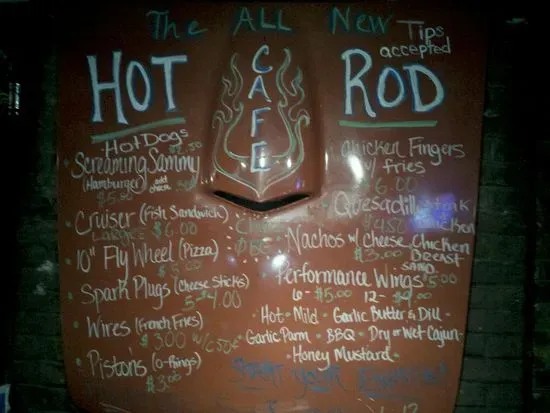 The ALL New
Tips
accepted
HOT
CAFE
ROD
HotDogs
Screaming Sammy
(Hamburger) add
Cruiser (Fish Sandwich)
$6.00
10" Fly Wheel (Pizza)
Spark Plugs (Cheese Sticks)
5-$4.00
Wires (French Fries)
$3.00 w/c 50¢
Pistons (O-Rings)
Chicken Fingers
w/ fries
$6.00
Quesadilla
Nachos w/ Cheese
$3.00
Chicken
Breast
Performance Wings
$5.00
6- $5.00 12- $9.00
Hot Mild Garlic Butter & Dill
Garlic Parm BBQ Dry or Wet Cajun
Honey Mustard